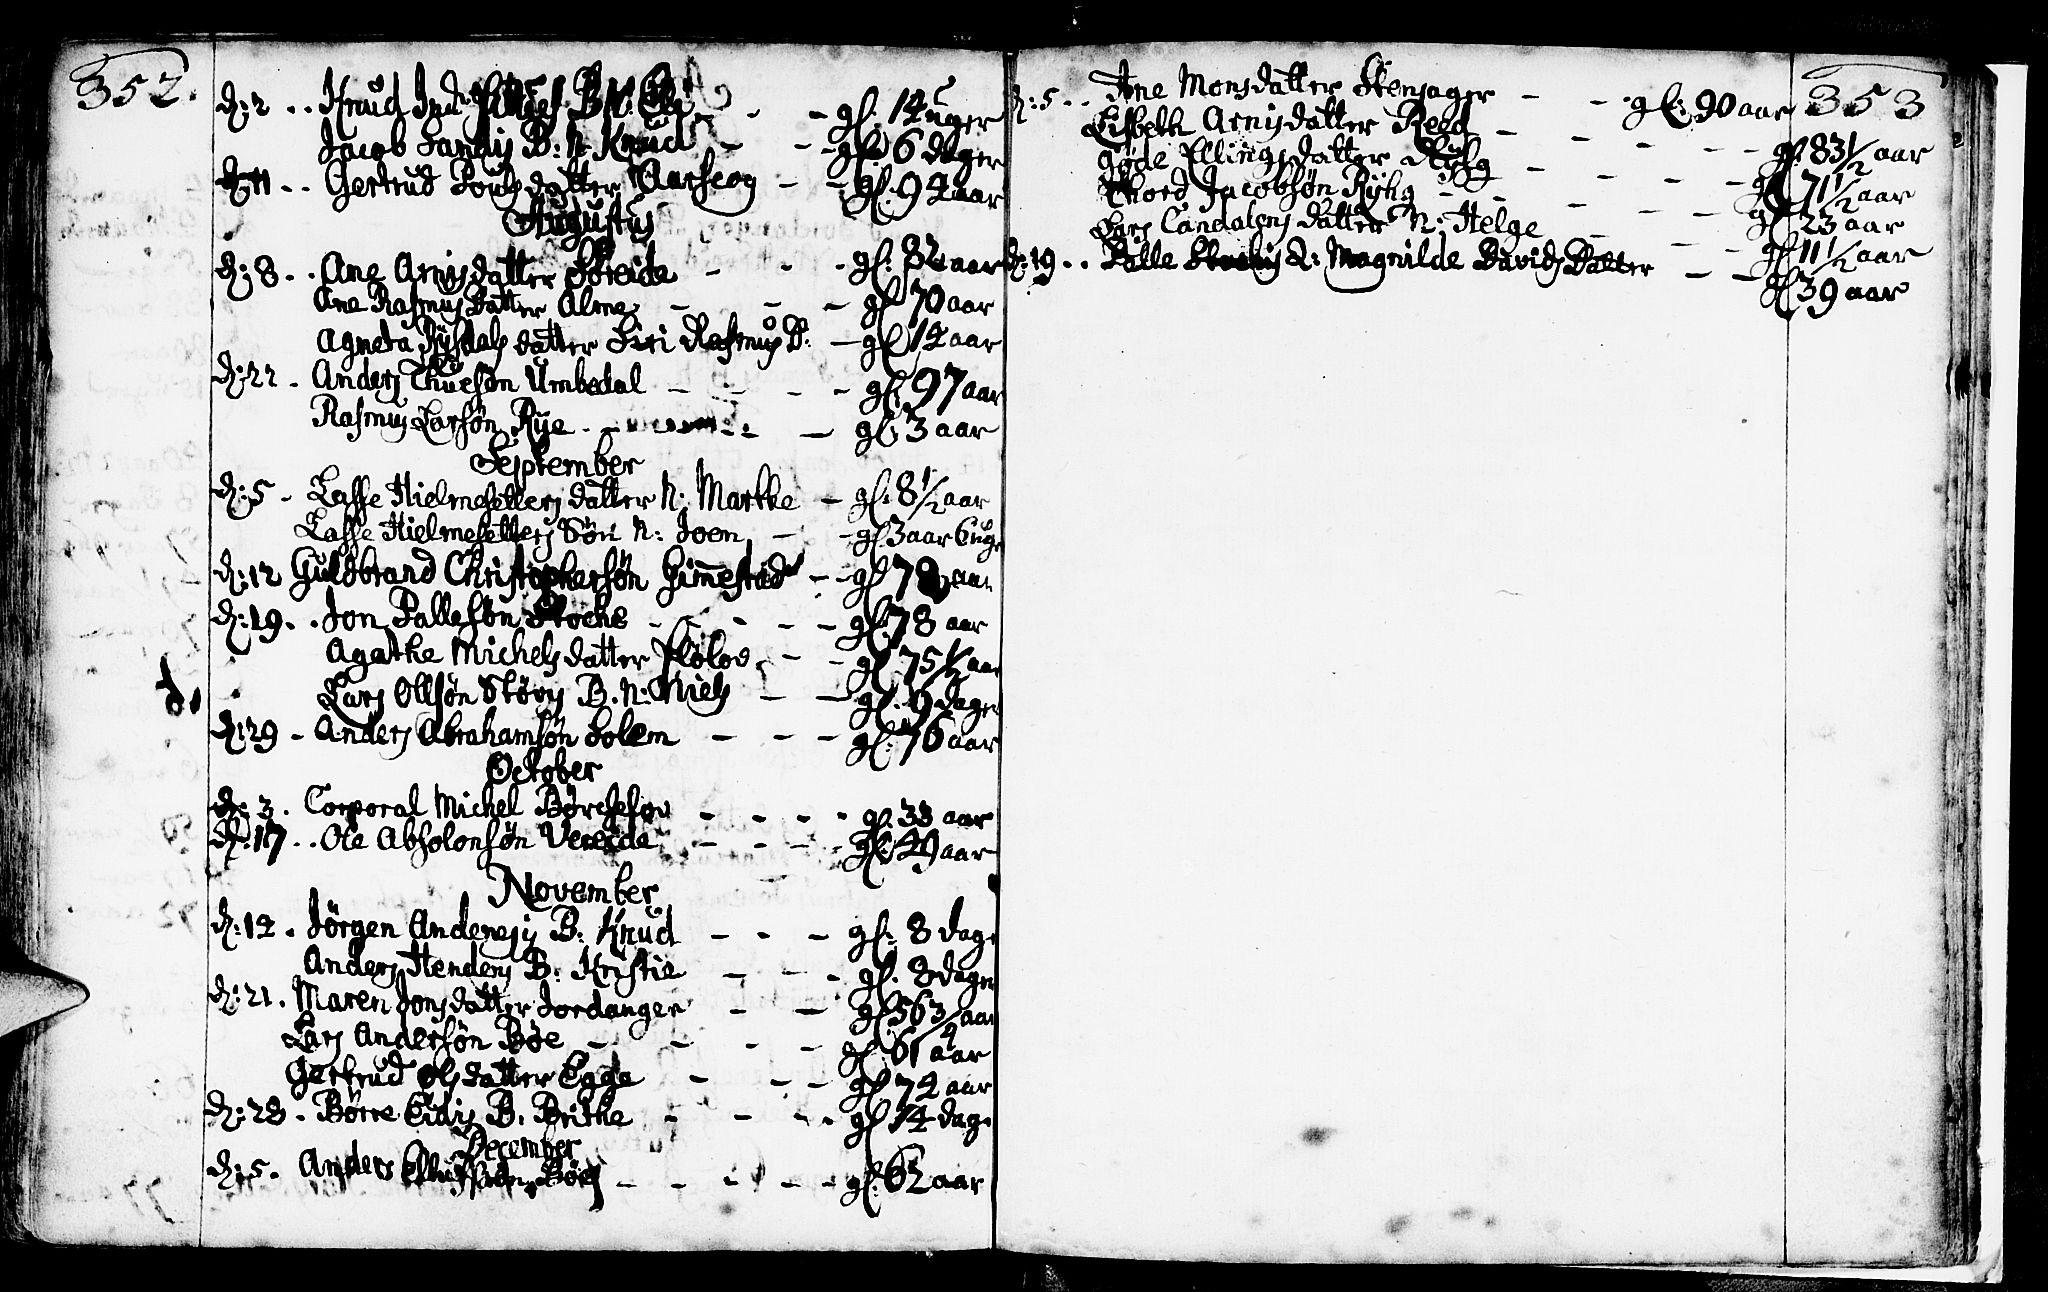 352.
d: 2 .. Knud - - gl: 14 uger
Jacob Sandis B: N: Knud - - gl: 6 dager
d: 11 .. Gertrud Pouls datter Aarseeg - - gl: 94 aar
Augustus
d: 8 .. Ane Arnis datter Søreide - - gl: 82 aar
Ane Rasmus datter Alme - - - gl 70 aar
Agneta datter Siri Rasmus D: - gl 14 aar
d: 22 . Anders Thuesøn Umbedal - - - - gl: 97 aar
Rasmus Larsøn Rye - - - gl: 3 aar
September
d: 5 - Lasse Hielmesetters datter N: Marthe - gl: 8 1/2 aar
Lasse Hielmesetters Søn N: Joen - - gl 3 aar 6 uge
d: 12 Guldbrand Christophersøn Gimmestad - - gl 78 aar
d: 19 .. Jon Pallesøn - - - - gl: 78 aar
Agathe Michels datter Fløloe - - gl: 75 1/2 aar
d. Lars Olsøn Støvs B. N: Niels - - gl: 9 dage
d: 29 - Anders Abrahamsøn Solem - - - gl: 76 aar
October
d: 3 . Corporal Michel - - - - gl: 33 aar
d: 17 .. Ole Absolonsøn Vereide - - - - gl: 49 aar
November
d: 14 . Jørgen B: Knud - - - gl: 8 dage
Anders Henders B: Kristie - - - gl: 8 dager
d: 21 . Maren Jons datter Jordanger - - gl 56 3/4 aar
Lars Andersøn Bøe - - - - gl: 61 aar
Gertrud Ols datter Egge - - - gl 74 aar
d: 28 . Børre Eidis B. Brithe - - - gl 14 dage
December
d: 5 . Anders - - - - gl: 62 aar
353
d: 5 .. Ane Mons datter Stensager - - gl: 90 aar
Lisbeth Arnis datter Reed - - - - gl: 83 1/2 aar
Gøde Ellings datter - - - - gl 71 1/2 aar
Thord Jacobsøn - - - - gl 23 aar
Lars Candalens datter N: Helge - - - gl 11 1/2 aar
d: 19 .. Palle Q: Magnilde Davids Datter - - gl 39 aar